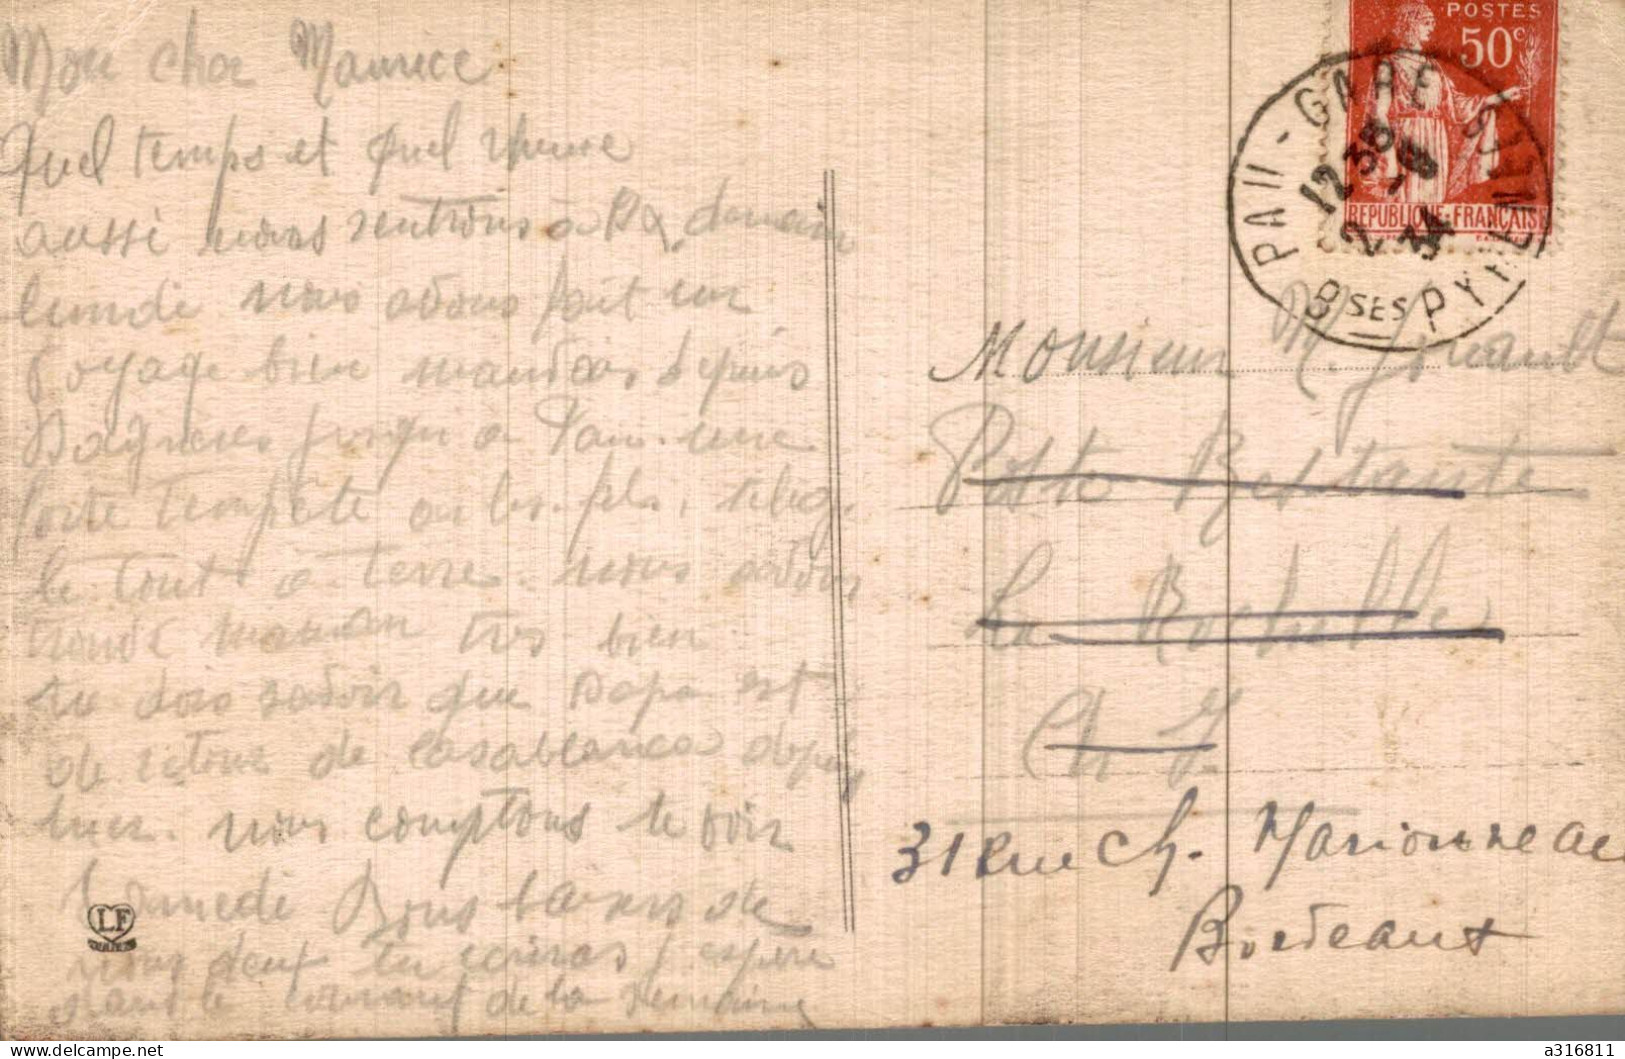 Mon cher Maurice
Quel temps et quel
aussi nous rentrons à demain
lundi nous avons fait un
voyage bien mauvais depuis
Bagneres jusqu a Pau. une
forte tempête
le tout a terre. nous avons
trouvé maman tres bien
tu dois savoir que papa est
de retour de Casablanca depuis
hier. nous comptons te voir
samedi Bons baisers de
nous deux tu ecriras j espere
dans le courant de la semaine
LF
POSTES
50c
REPUBLIQUE FRANCAISE
PAU - GARE
12 35
2 - 34
BSES PYRENEES
Monsieur M.
Poste Restante
La Rochelle
Ch I.
31 Rue Ch. Marionneau
Bordeaux
a316811